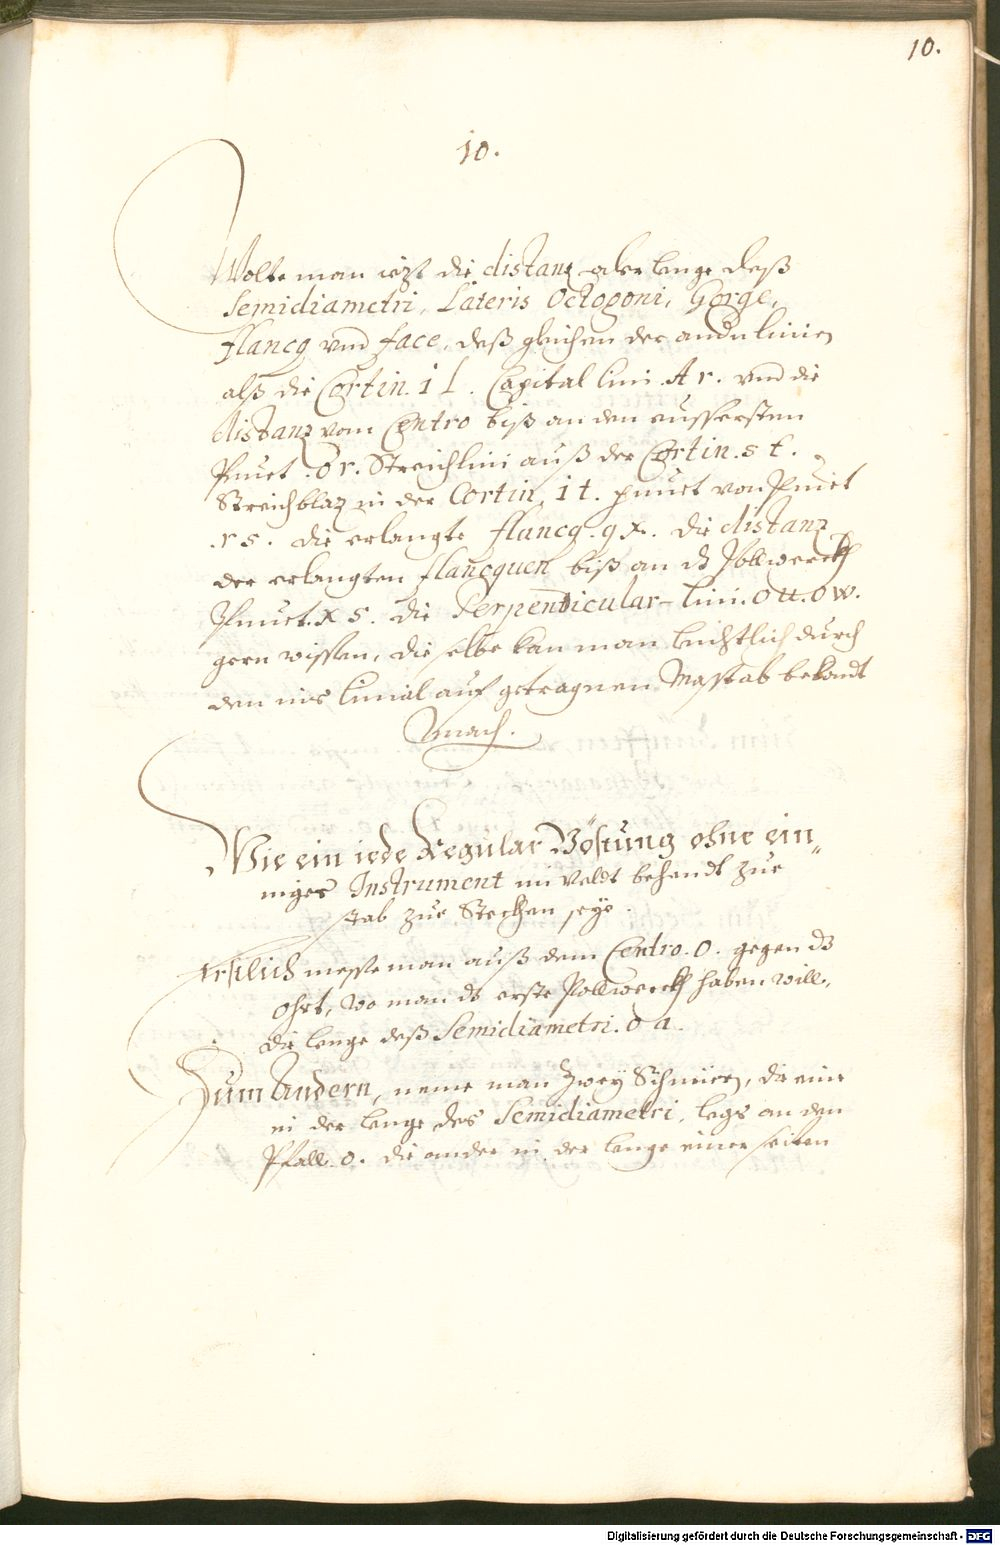 10.
10.
Wolte man ietzt die distanz oder lenge deß
Semidiametri, Lateris Octogoni, Gorge,
flancq vnd face, deß gleichen der andn linien
alß die Cortin. i l. Capital lini. A r. vnd die
distanz vom Centro biß an den eussersten
Punct. o r. Streichlini auß der Cortin. s t.
Streichblaz in der Cortin. i t. punct von Punct
.r s. die erlangte flancq. q x. die distanz
der erlangten flancquen biß an dz Pollwerckh
Punct. x s. die Perpendicular-lini. o u. o w.
gern wissen, die selbe kan man leichtlich durch
den ins lineal auf getragnen Mastab bekandt
mach.
Wie ein iede Regular Vöstung ohne ein„
niges Instrument im Veldt behendt zue
stab zue Stechen seye.
Erstlich messe man auß dem Centro. o. gegen dz
ohrt, wo man dz erste Pollwerckh haben will,
die lenge deß Semidiametri. o a.
Zum Andern, neme man Zwey Schnüer, die eine
in der lenge des Semidiametri, legs an den
Pfall. o. die ander in der lenge einer seiten
Digitalisierung gefördert durch die Deutsche Forschungsgemeinschaft - DFG